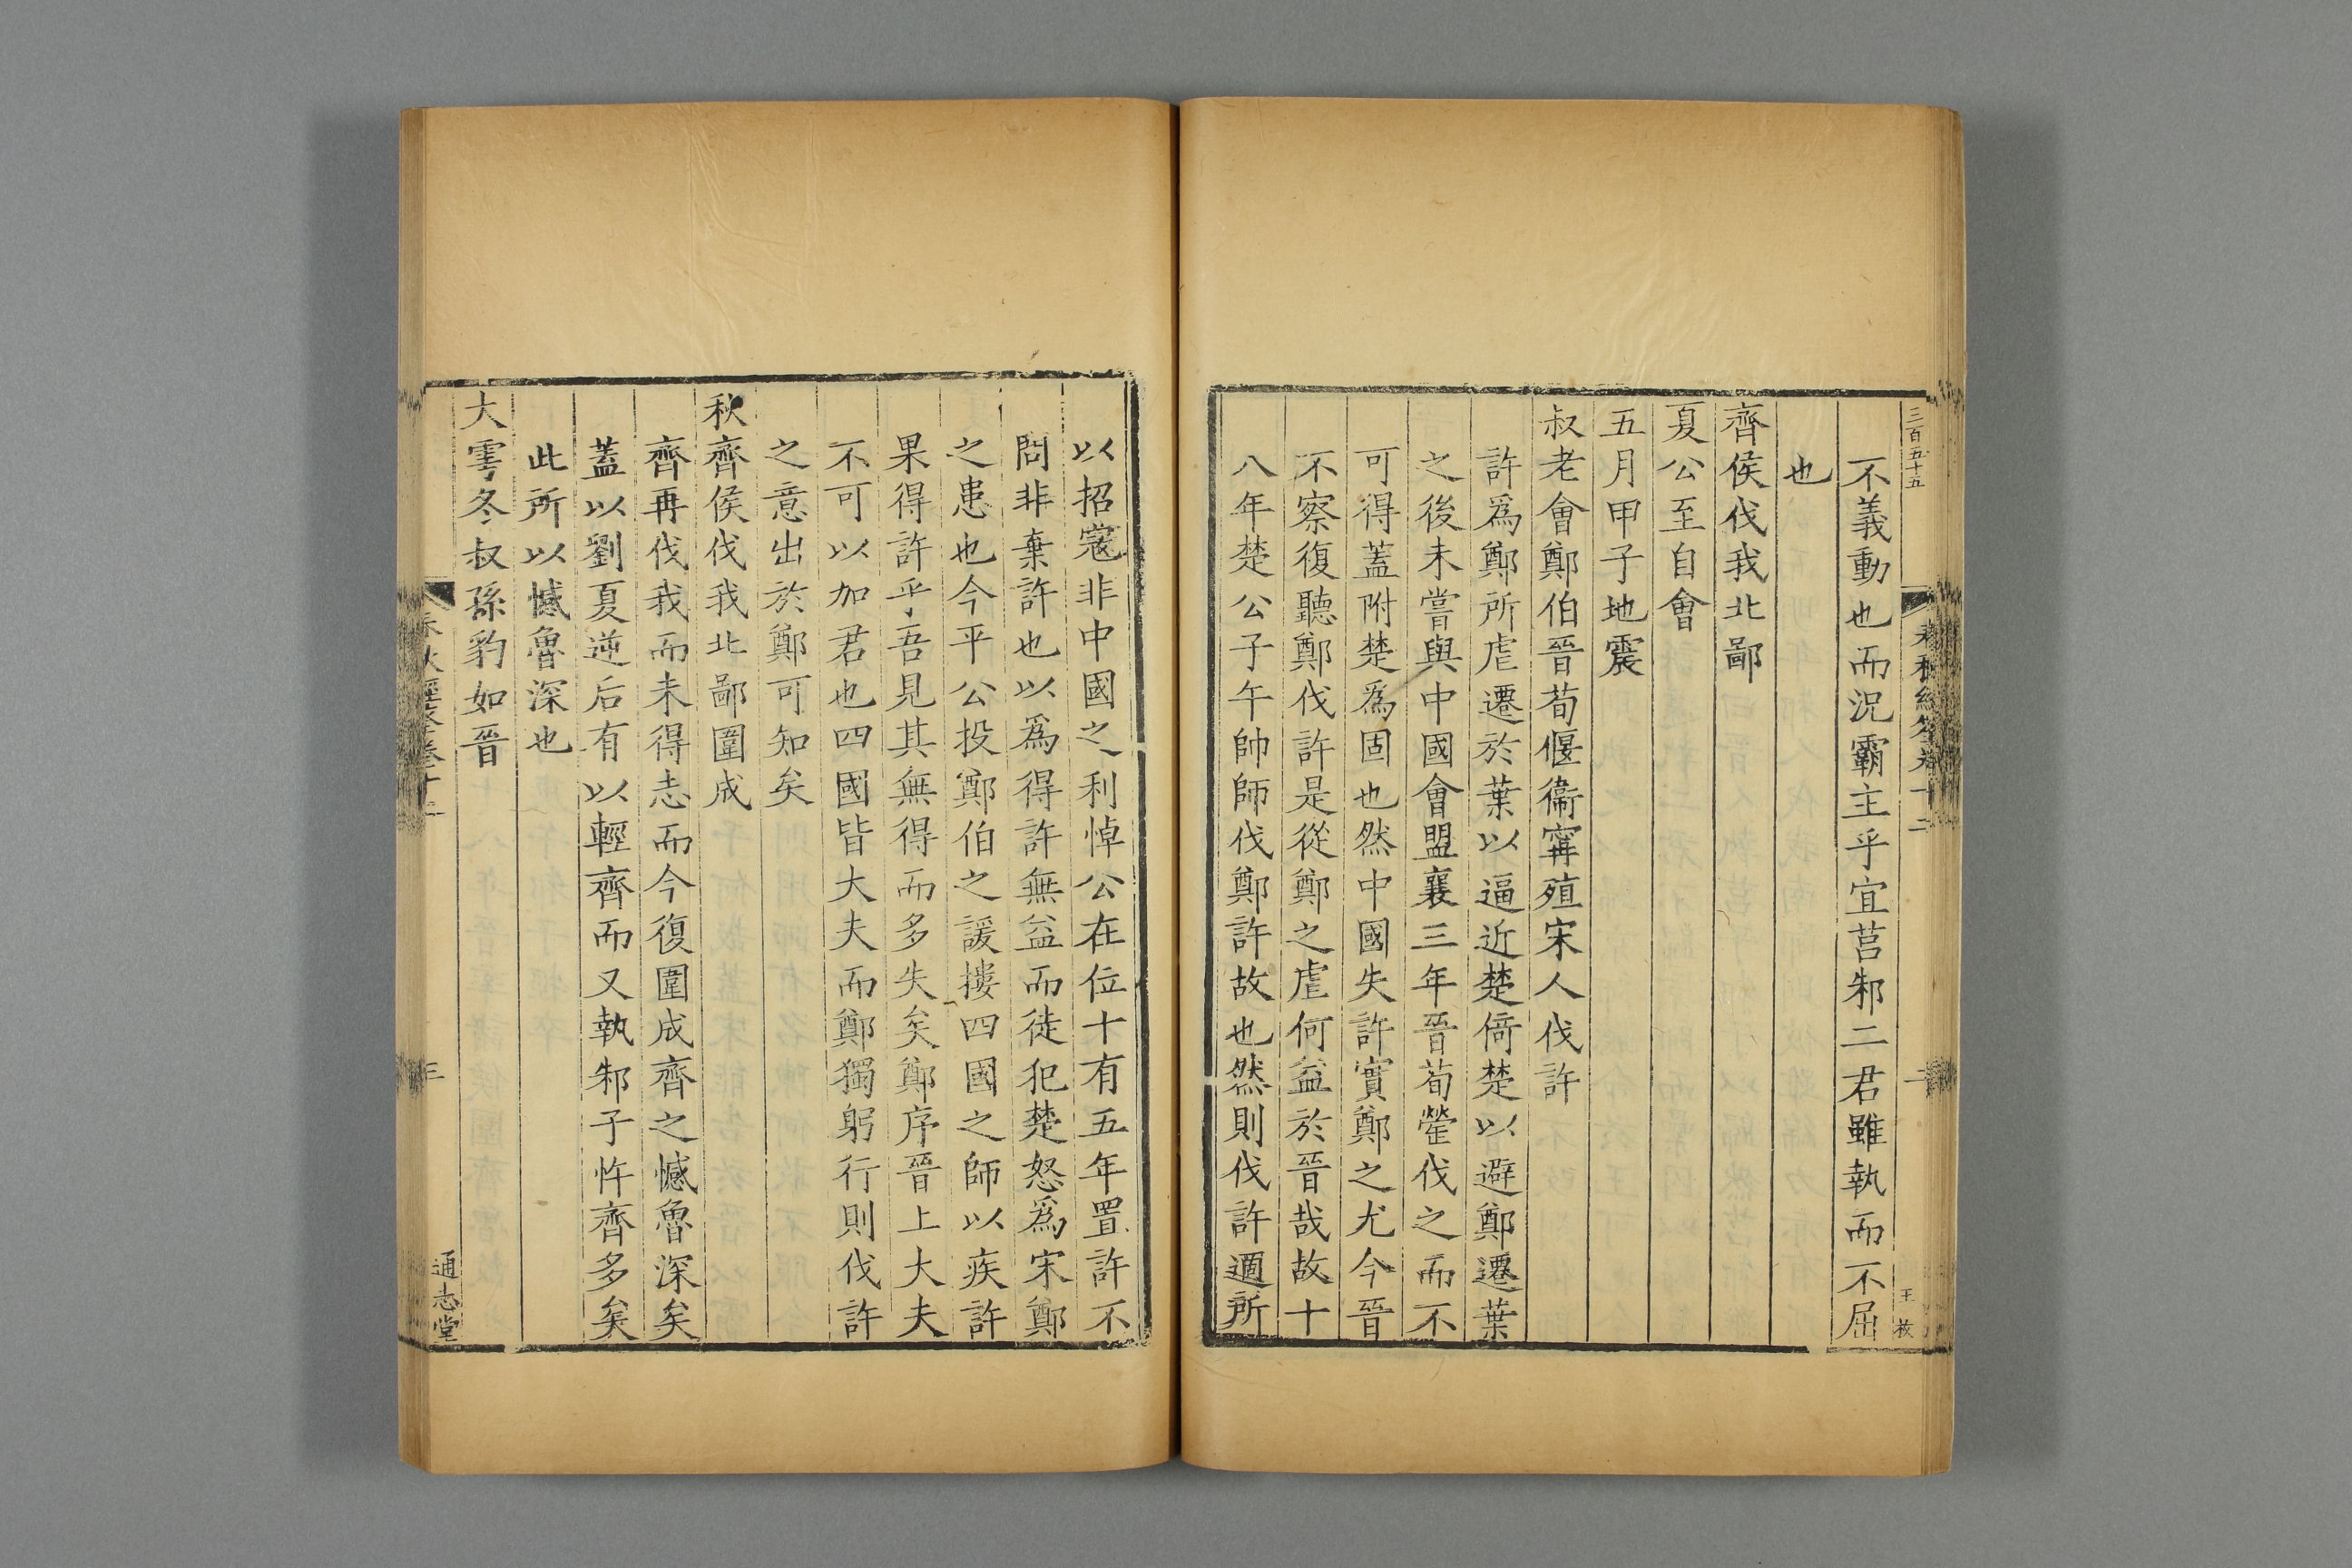 三百五十五
不義動也而況霸主乎宜莒邾二君雖執而不屈
也
齊侯伐我北鄙
夏公至自會
五月甲子地震
叔老會鄭伯晉荀偃衞甯殖宋人伐許
許爲鄭所虐遷於葉以逼近楚倚楚以避鄭遷葉
之後未嘗與中國會盟襄三年晉荀罃伐之而不
可得蓋附楚爲固也然中國失許實鄭之尤今晉
不察復聽鄭伐許是從鄭之虐何益於晉哉故十
八年楚公子午帥師伐鄭許故也然則伐許適所
以招寇非中國之利悼公在位十有五年置許不
問非棄許也以爲得許無益而徒犯楚怒爲宋鄭
之患也今平公投鄭伯之諼摟四國之師以疾許
果得許乎吾見其無得而多失矣鄭序晉上大夫
不可以加君也四國皆大夫而鄭獨躬行則伐許
之意出於鄭可知矣
秋齊侯伐我北鄙圍成
齊再伐我而未得志而今復圍成齊之憾魯深矣
蓋以劉夏逆后有以輕齊而又執邾子忤齊多矣
此所以憾魯深也
大雩冬叔孫豹如晉
春秋經筌卷十二
三
通志堂